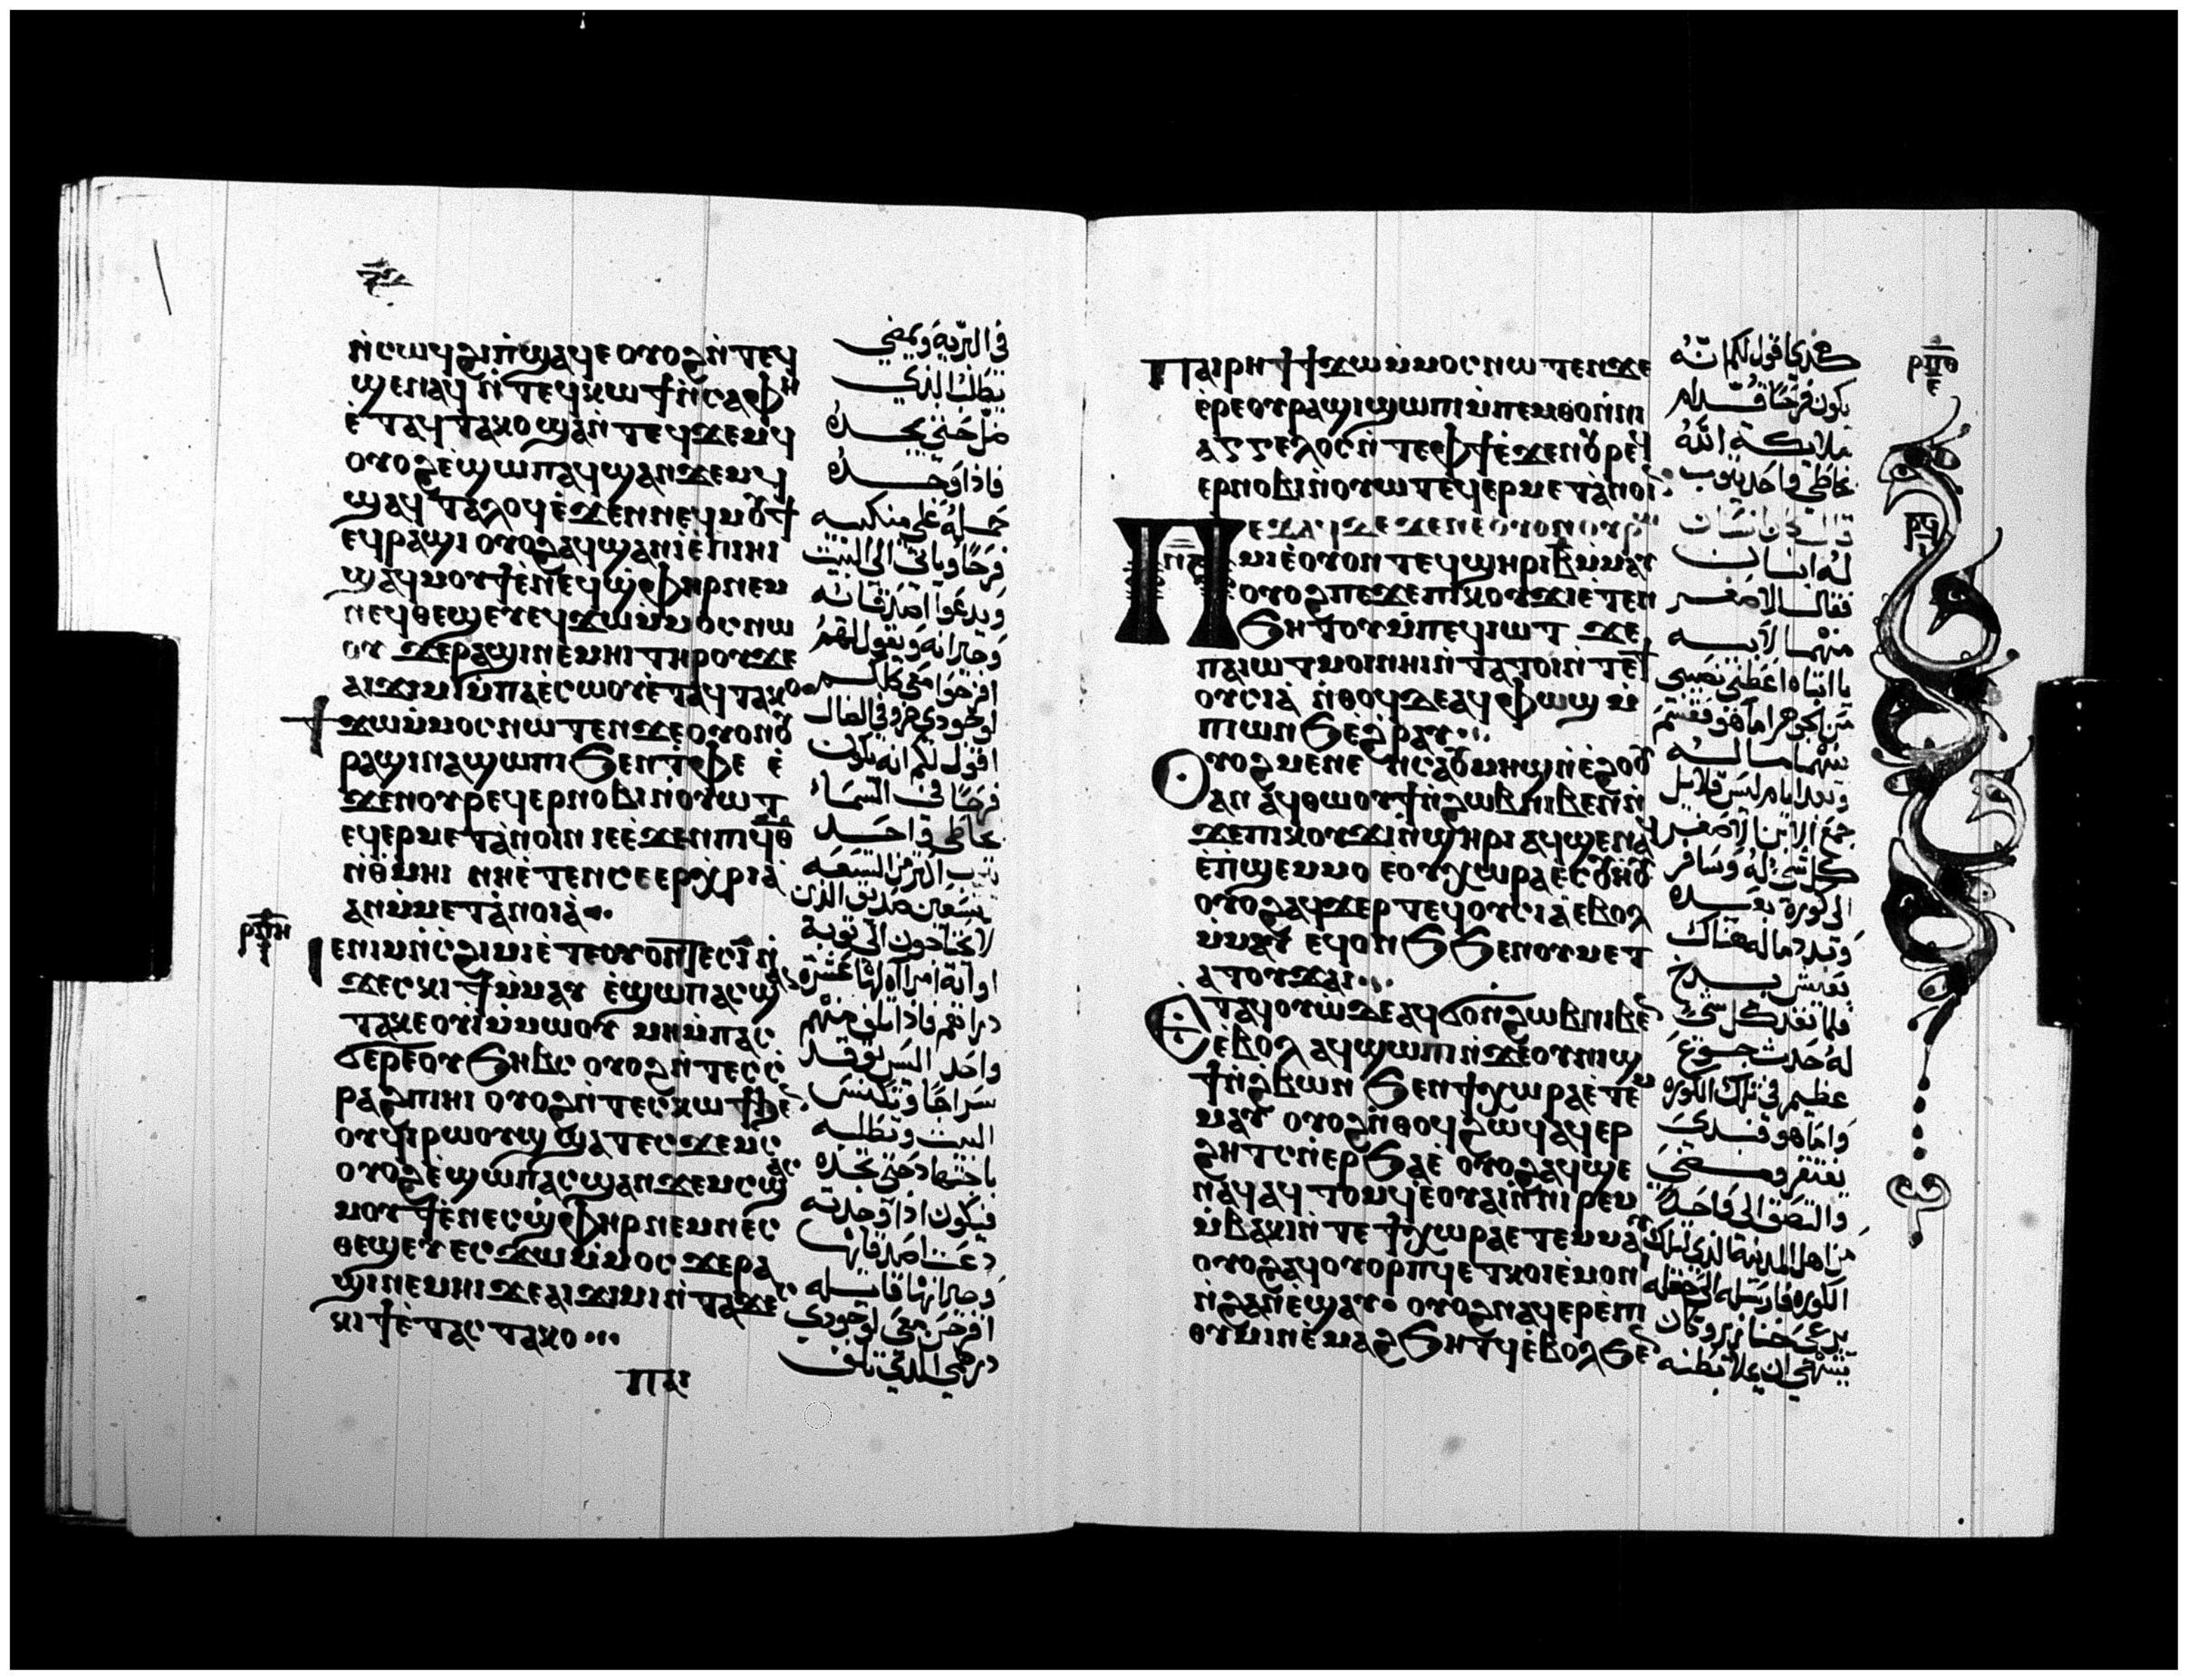 ⲛ̀ⲥⲱϥ ϩⲓ ⲡ̀ϣⲁϥⲉ ⲟⲩⲟϩ ⲛ̀ⲧⲉϥ
ϣⲉⲛⲁϥ ⲛ̀ⲧⲉϥⲭⲱ ϯ ⲛ̀ⲥⲁ ⲫⲏ
ⲉ̀ⲧⲁϥⲧⲁⲕⲟ ϣⲁⲛ̀ⲧⲉϥϫⲉⲙϥ
ⲟⲩⲟϩ ⲉ̀ϣⲱⲡ ⲁϥϣⲁⲛϫⲉⲙϥ
ϣⲁϥⲧⲁⲗⲟϥ ⲉ̀ϫⲉⲛ ⲛⲉϥⲙⲟϯ
ⲉϥⲣⲁϣⲓ ⲟⲩⲟϩ ⲁϥϣⲁⲛⲓ ⲉ̀ⲡⲓⲏⲓ
ϣⲁϥⲙⲟⲩϯ ⲉ̀ⲛⲉϥϣ̀ⲫⲏⲣ ⲛⲉⲙ
ⲛⲉϥⲑⲉϣⲉⲩ ⲉϥϫⲱ ⲙ̀ⲙⲟⲥ ⲛⲱ
ⲟⲩ ϫⲉ ⲣⲁϣⲓ ⲛⲉⲙⲏⲓ ⲧⲏⲣⲟⲩ ϫⲉ
ⲁⲓϫⲓⲙⲓ ⲙ̀ⲡⲁⲉ̀ⲥⲱⲟⲩ ⲉ̀ⲧⲁϥⲧⲁⲕⲟ
ϯϫⲱ ⲙ̀ⲙⲟⲥ ⲛⲱⲧⲉⲛ ϫⲉ ⲟⲩⲟⲛ ⲟⲩ
ⲣⲁϣⲓ ⲛⲁϣⲱⲡⲓ ϧⲉⲛ ⲧ̀ⲫⲉ ⲉ̀
ϫⲉⲛ ⲟⲩⲣⲉϥⲉⲣⲛⲟⲃⲓ ⲛ̀ⲟⲩⲱⲧ
ⲉϥⲉⲣⲙⲉⲧⲁⲛⲟⲓⲛ ⲓⲉ ⲉ̀ϫⲉⲛ ⲡⲓϥⲑ
ⲛ̀ⲑ̀ⲙⲏⲓ ⲛⲏ ⲉ̀ⲧⲉⲛⲥⲉⲉⲣⲭⲣⲓⲁ
ⲁⲛ ⲙ̀ⲙⲉⲧⲁⲛⲟⲓⲁ
ⲣⲡⲏ
ⲓⲉ ⲛⲓⲙ ⲛ̀ⲥϩⲓⲙⲓ ⲉ̀ⲧⲉ ⲟⲩⲟⲛⲧⲉⲥ ⲓ̅ ⲛ̀
ϫⲉⲥⲕⲓϯ ⲙ̀ⲙⲁⲩ ⲉ̀ϣⲱⲡ ⲁⲥϣⲁⲛ
ⲧⲁⲕⲉ ⲟⲩⲓ ⲙ̀ⲙⲱⲟⲩ ⲙⲏ ⲙ̀ⲡⲁⲥ
ϭⲉⲣⲉ ⲟⲩϧⲏⲃⲥ ⲟⲩⲟϩ ⲛ̀ⲧⲉⲥⲥ
ⲣⲁϩ ⲡⲓⲏⲓ ⲟⲩⲟϩ ⲛ̀ⲧⲉⲥⲕⲱϯ ϧⲉⲛ
ⲟⲩϥⲓⲣⲱⲟⲩϣ ϣⲁⲧⲉⲥϫⲉⲙⲥ
ⲟⲩⲟϩ ⲉ̀ϣⲱⲡ ⲁⲥϣⲁⲛϫⲉⲙⲥ ϣⲁⲥ
ⲙⲟⲩϯ ⲉ̀ⲛⲉⲥϣ̀ⲫⲏⲣ ⲛⲉⲙ ⲛⲉⲥ
ⲑⲉϣⲉⲩ ⲉⲥϫⲱ ⲙ̀ⲙⲟⲥ ϫⲉ ⲣⲁ
ϣⲓ ⲛⲉⲙⲏⲓ ϫⲉ ⲁⲓϫⲓⲙⲓ ⲛ̀ⲧⲁϫⲉⲥ
ⲕⲓϯ ⲉ̀ⲧⲁⲥⲧⲁⲕⲟ
ⲡⲁⲓ
في البرية ويمضي
يطلب الذي
ضل حتى يجده
فاذا وجده
حمله على منكبيه
فرحًا وياتي الى البيت
ويدعوا اصدقائه
وجيرانه ويقول لهم
افرحوا معي كلكم
لوجودي خروفي الضال
اقول لكم انه يكون
فرحًا في السماء
بخاطي واحد
يتوب اكثر من التسعه
وتسعين صديق الذين
لا يحتاجون الى توبة
او اية امراه لها عشرة
دراهم فاذا تلف منهم
واحد اليس توقد
سراجًا وتكنس
البيت وتطلبه
باجتهاد حتى تجده
فيكون اذا وجدته
دعت اصدقائها
وجيرانها قايله
افرحن معي لوجودي
درهمي الذي تلف
Ⲡⲁⲓⲣⲏϯ ϯϫⲱ ⲙ̀ⲙⲟⲥ ⲛⲱⲧⲉⲛ ϫⲉ
ⲉⲣⲉ ⲟⲩⲣⲁϣⲓ ϣⲱⲡⲓ ⲙ̀ⲡⲉⲙⲑⲟ ⲛ̀ⲛⲓ
ⲁⲅⲅⲉⲗⲟⲥ ⲛ̀ⲧⲉ ⲫϯ ⲉ̀ϫⲉⲛ ⲟⲩⲣⲉϥ
ⲉⲣⲛⲟⲃⲓ ⲛ̀ⲟⲩⲱⲧ ⲉϥⲉⲣⲙⲉⲧⲁⲛⲟⲓⲛ
Ⲡⲉϫⲁϥ ϫⲉ ϫⲉ ⲛⲉ ⲟⲩⲟⲛ ⲟⲩⲣⲱ
ⲙⲓ ⲉ̀ ⲟⲩⲟⲛⲧⲉϥ ϣⲏⲣⲓ ⲃ̅ ⲙ̀ⲙⲁⲩ
ⲟⲩⲟϩ ⲡⲉϫⲉ ⲡⲓⲕⲟⲩϫⲓ ⲉ̀ⲧⲉⲛ
ϧⲏⲧⲟⲩ ⲙ̀ⲡⲉϥⲓⲱⲧ ϫⲉ
ⲡⲁⲓⲱⲧ ⲙⲟⲓ ⲛⲏⲓ ⲛ̀ⲧⲁⲧⲟⲓ ⲛ̀ⲧⲉ ϯ
ⲟⲩⲥⲓⲁ ⲛ̀ⲑⲟϥ ϫⲉ ⲁϥⲫⲱϣ ⲙ̀
ⲡⲱⲛϧ ⲉϩⲣⲁⲩ
Ⲟⲩⲟϩ ⲙⲉⲛⲉⲛⲥⲁ ⲟⲩⲙⲏϣ ⲛ̀ⲉϩⲟⲟⲩ
ⲁⲛ ⲁϥⲑⲱⲟⲩϯ ⲛ̀ϩⲱⲃ ⲛⲓⲃⲉⲛ ⲛ̀
ϫⲉ ⲡⲓⲕⲟⲩϫⲓ ⲛ̀ϣⲏⲣⲓ ⲁϥϣⲉⲛⲁϥ
ⲉ̀ⲡϣⲉⲙⲙⲟ ⲉ̀ⲟⲩⲭⲱⲣⲁ ⲉⲥⲟⲩⲏⲟⲩ
ⲟⲩⲟϩ ⲁϥϫⲉⲣ ⲧⲉϥⲟⲩⲥⲓⲁ ⲉ̀ⲃⲟⲗ
ⲙ̀ⲙⲁⲩ ⲉϥⲟⲛϧ ϧⲉⲛ ⲟⲩⲙⲉⲧ
ⲁⲧⲟⲩϫⲁⲓ
Ⲉⲧⲁϥⲟⲩⲱ ϫⲉ ⲁϥϭⲟⲛ ϩⲱⲃ ⲛⲓⲃⲉⲛ
ⲉ̀ⲃⲟⲗ ⲁϥϣⲱⲡⲓ ⲛ̀ϫⲉ ⲟⲩⲛⲓϣ
ϯ ⲛ̀ϩⲃⲱⲛ ϧⲉⲛ ϯⲭⲱⲣⲁ ⲉ̀ⲧⲉⲙ
ⲙⲁⲩ ⲟⲩⲟϩ ⲛ̀ⲑⲟϥ ϩⲱϥ ⲁϥⲉⲣ
ϩⲏⲧⲥ ⲛ̀ⲉⲣϧⲁⲉ̀ ⲟⲩⲟϩ ⲁϥϣⲉ
ⲛⲁϥ ⲁϥⲧⲟⲙϥ ⲉ̀ⲟⲩⲁⲓ ⲛ̀ⲛⲓⲣⲉⲙ
ⲙ̀ⲃⲁⲕⲓ ⲛ̀ⲧⲉ ϯⲭⲱⲣⲁ ⲉⲧⲉⲙⲙⲁⲩ
ⲟⲩⲟϩ ⲁϥⲟⲩⲟⲣⲡϥ ⲉ̀ⲧⲕⲟⲓ ⲉ̀ⲙⲟⲛⲓ
ⲛ̀ϩⲁⲛⲉϣⲁⲩ ⲟⲩⲟϩ ⲛⲁϥⲉⲣⲉ̀ⲡⲓ
ⲑⲩⲙⲓⲛ ⲉ̀ⲙⲁϩ ϧⲏⲧϥ ⲉ̀ⲃⲟⲗ ϧⲉⲛ
هكذي اقول لكم انه
يكون فرحًا قدام
ملايكة الله
بخاطي واحد يتوب
قال كان انسان
له ابنان
فقال الاصغر
منهما لابيه
يا ابتاه اعطني نصيبي
من الجوهر اما هو فقسم
بينهما ماله
وبعد ايام ليس قلايل
جمع الابن الاصغر
كل شي له وسافر
الى كورة بعيده
وبدد ماله هناك
بعيش بذخ
فلما نفد كل شي
له حدث جوع
عظيم في تلك الكوره
واما هو فبدى
يفتقر ومضى
والتصق الى واحد
من اهل المدينة الذي لتلك
الكوره فارسله الى حقله
يرعى خنازير وكان
يشتهي ان يملا بطنه
ⲣⲡⲑ
ⲉ
ⲣϥ
ⲓ